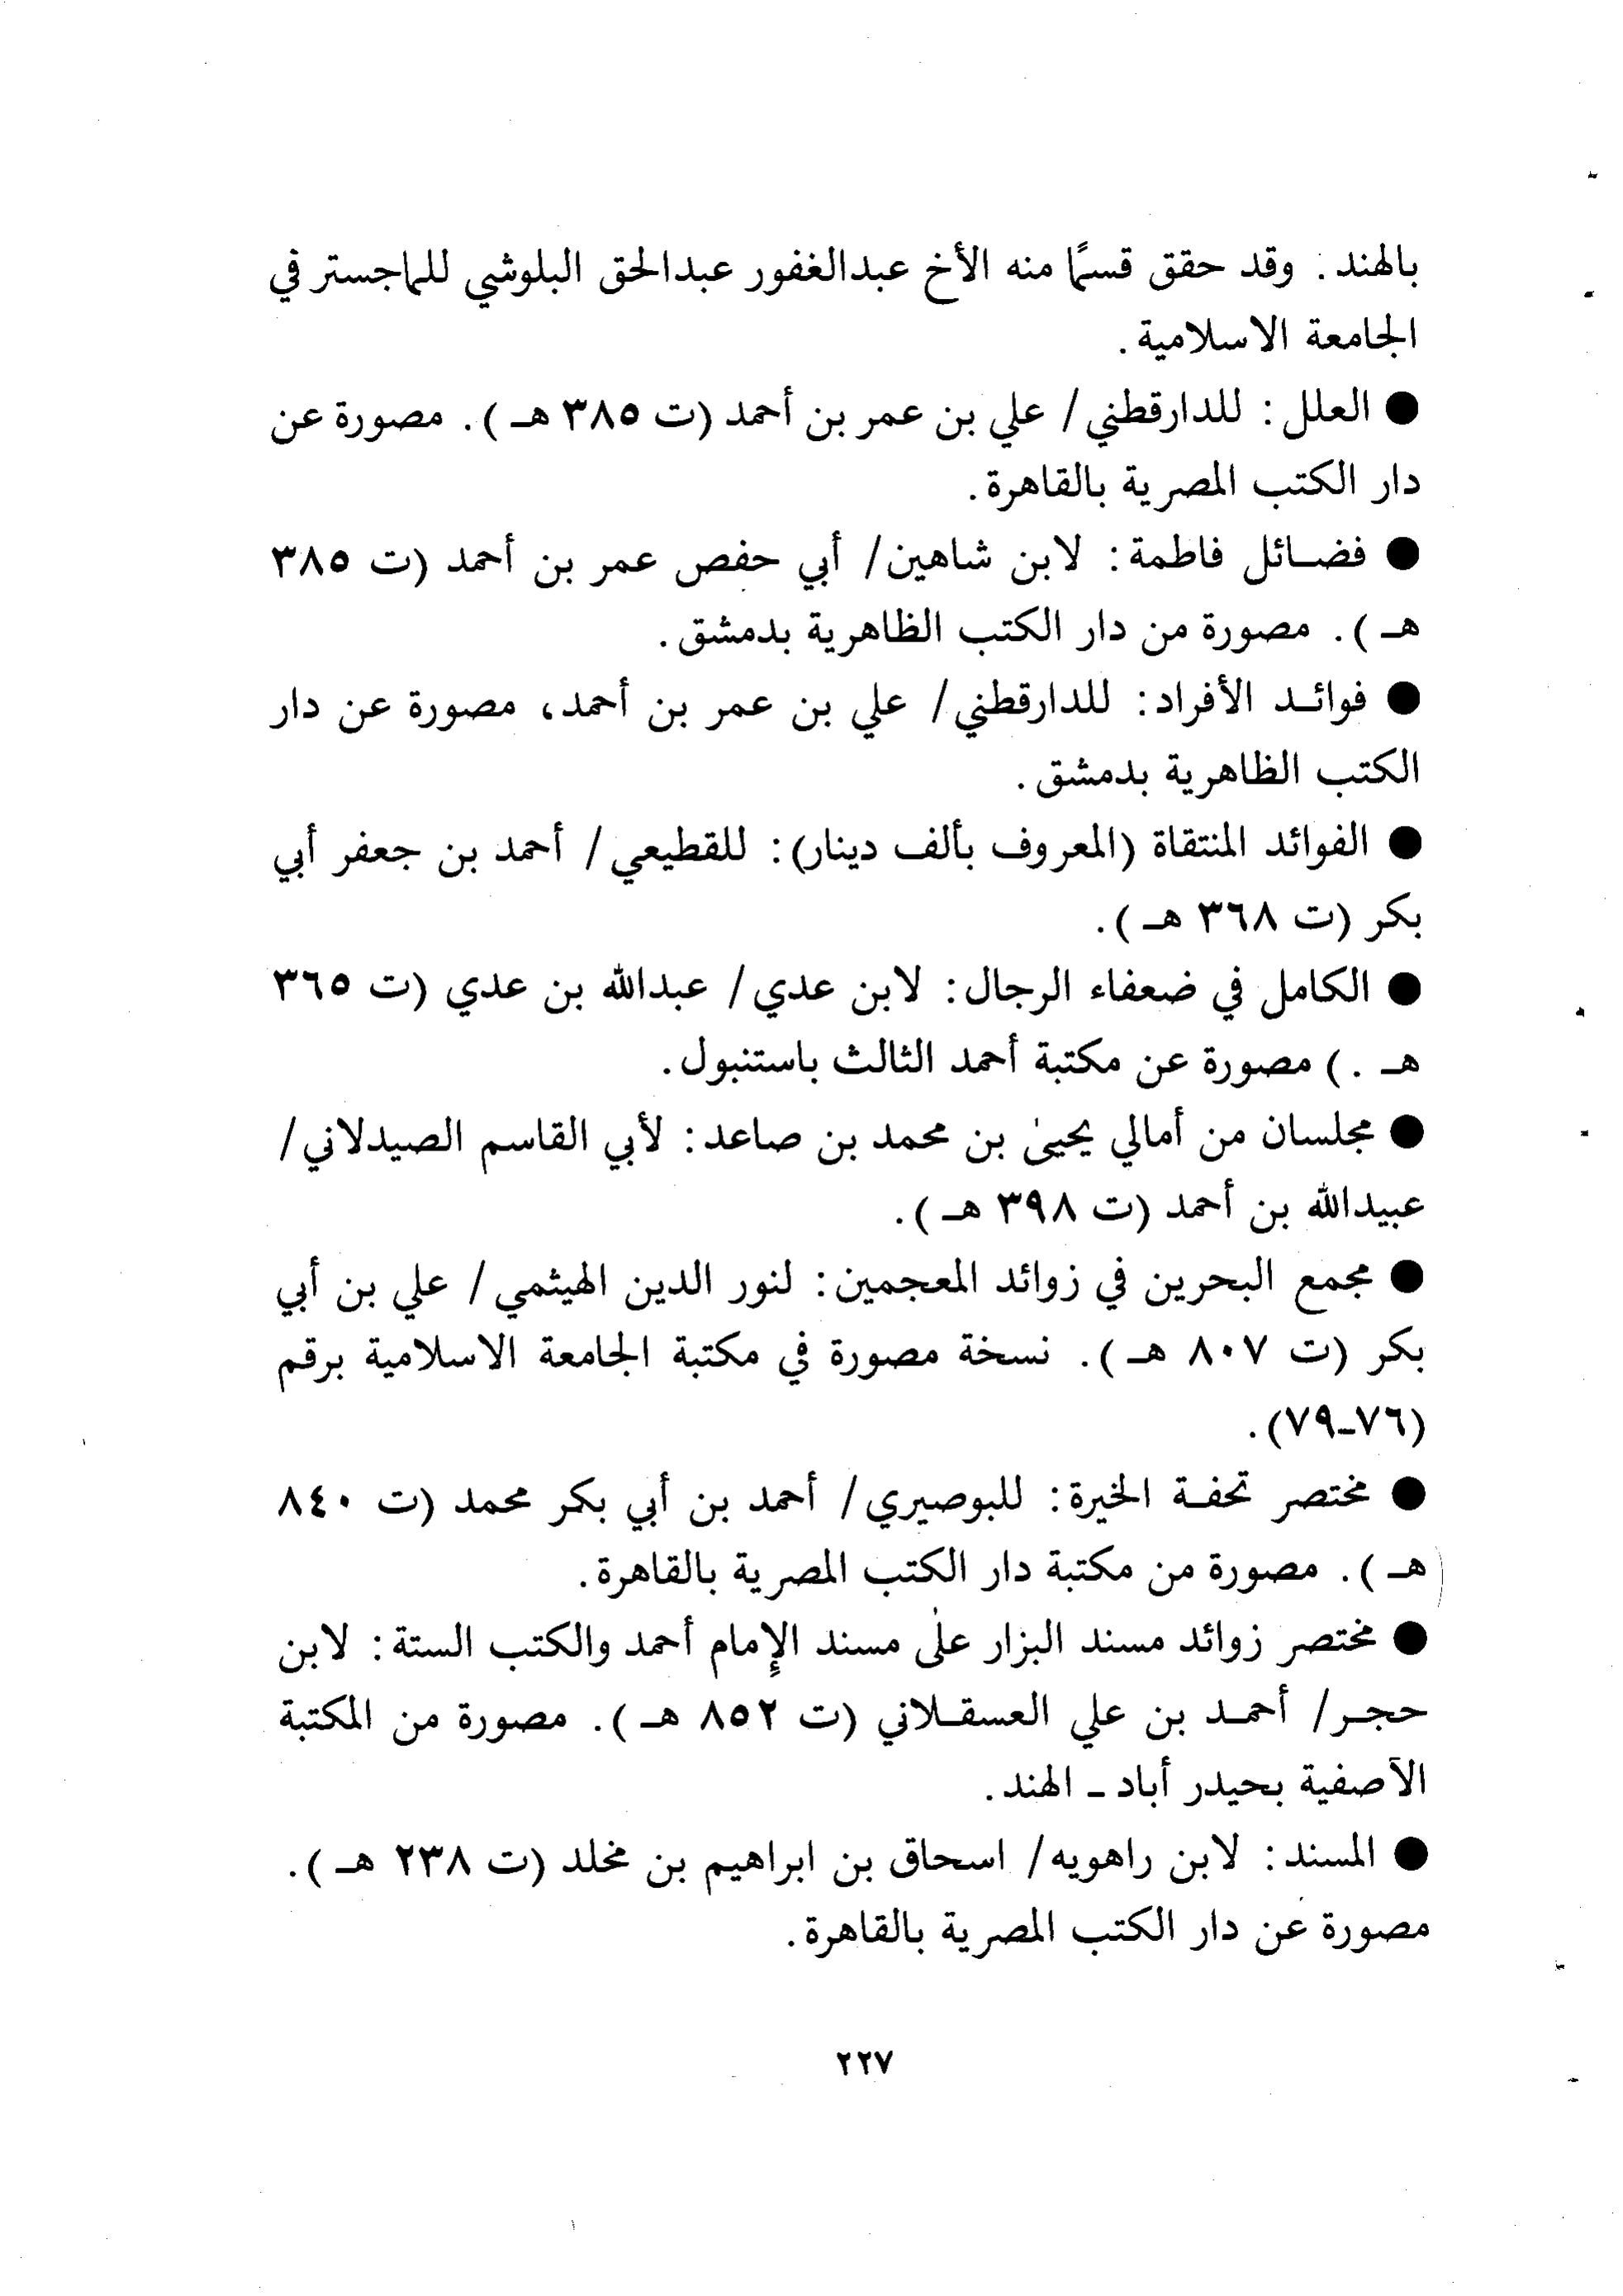 بالهند. وقد حقق قسمًا منه الأخ عبدالغفور عبدالحق البلوشي للماجستر في
الجامعة الاسلامية.
● العلل: للدارقطني/ علي بن عمر بن أحمد (ت ٣٨٥ هـ). مصورة عن
دار الكتب المصرية بالقاهرة.
● فضائل فاطمة: لابن شاهين/ أبي حفص عمر بن أحمد (ت ٣٨٥
هـ). مصورة من دار الكتب الظاهرية بدمشق.
● فوائد الأفراد: للدارقطني/ علي بن عمر بن أحمد، مصورة عن دار
الكتب الظاهرية بدمشق.
● الفوائد المنتقاة (المعروف بألف دينار): للقطيعي/ أحمد بن جعفر أبي
بكر (ت ٣٦٨ هـ).
● الكامل في ضعفاء الرجال: لابن عدي/ عبدالله بن عدي (ت ٣٦٥
هـ .) مصورة عن مكتبة أحمد الثالث باستنبول.
● مجلسان من أمالي يحيىٰ بن محمد بن صاعد: لأبي القاسم الصيدلاني/
عبيدالله بن أحمد (ت ٣٩٨ هـ).
● مجمع البحرين في زوائد المعجمين: لنور الدين الهيثمي/ علي بن أبي
بكر (ت ٨٠٧ هـ). نسخة مصورة في مكتبة الجامعة الاسلامية برقم
(٧٦-٧٩).
● مختصر تحفة الخيرة: للبوصيري/ أحمد بن أبي بكر محمد (ت ٨٤٠
هـ). مصورة من مكتبة دار الكتب المصرية بالقاهرة.
● مختصر زوائد مسند البزار علىٰ مسند الإمام أحمد والكتب الستة: لابن
حجر/ أحمد بن علي العسقلاني (ت ٨٥٢ هـ). مصورة من المكتبة
الآصفية بحيدر أباد - الهند.
● المسند: لابن راهويه/ اسحاق بن ابراهيم بن مخلد (ت ٢٣٨ هـ).
مصورة عن دار الكتب المصرية بالقاهرة.
٢٢٧